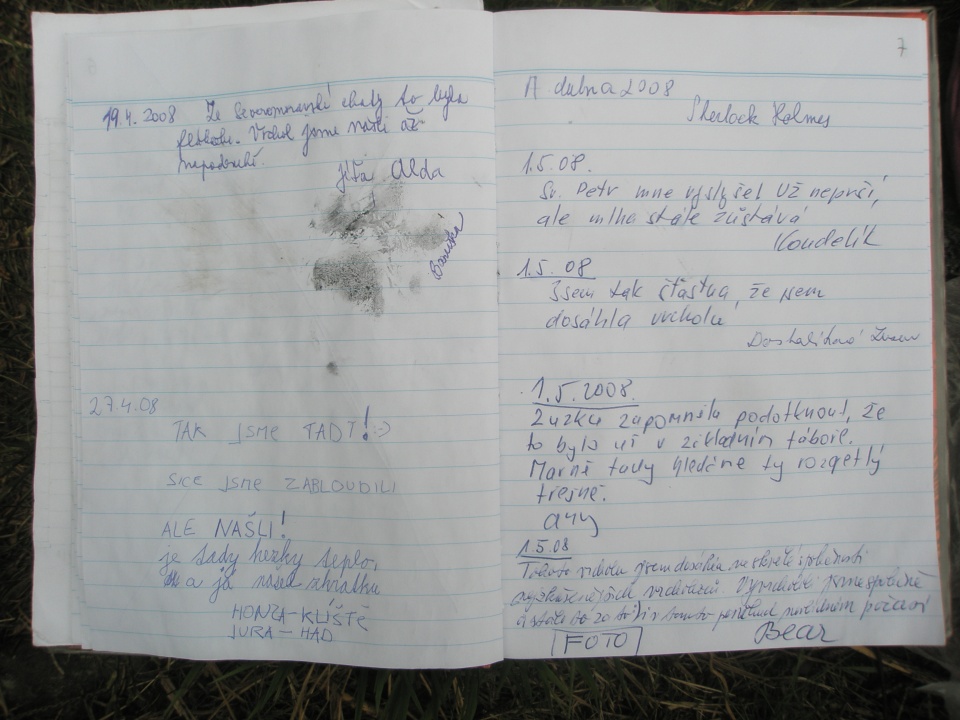 19.4. 2008 Ze severomoravské chaty to byla
Vrchol jsme našli až
napodruhé.
Jiťa, Alda
27.4.08
TAK JSME TADY! :-)
SICE JSME ZABLOUDILI
ALE NAŠLI!
je tady hezky teplo,
a já našel
HONZA-KLÍŠTĚ
JURA-HAD
7
A dubna 2008
Sherlock Holmes
1.5.08.
Sv. Petr mne vyslyšel Už neprší,
ale mlha stále zůstává
Koudelík
1.5. 08
Jsem tak šťastna, že jsem
dosáhla vrcholu
1.5.2008.
Zuzka zapomněla podotknout, že
to bylo už v základním táboře.
Marně tady hledáme ty rozkvetlý
třešně.
1.5.08
Tohoto vrcholu jsem dosáhla
jsme společně
a stálo to za to
počasí
FOTO
Bear